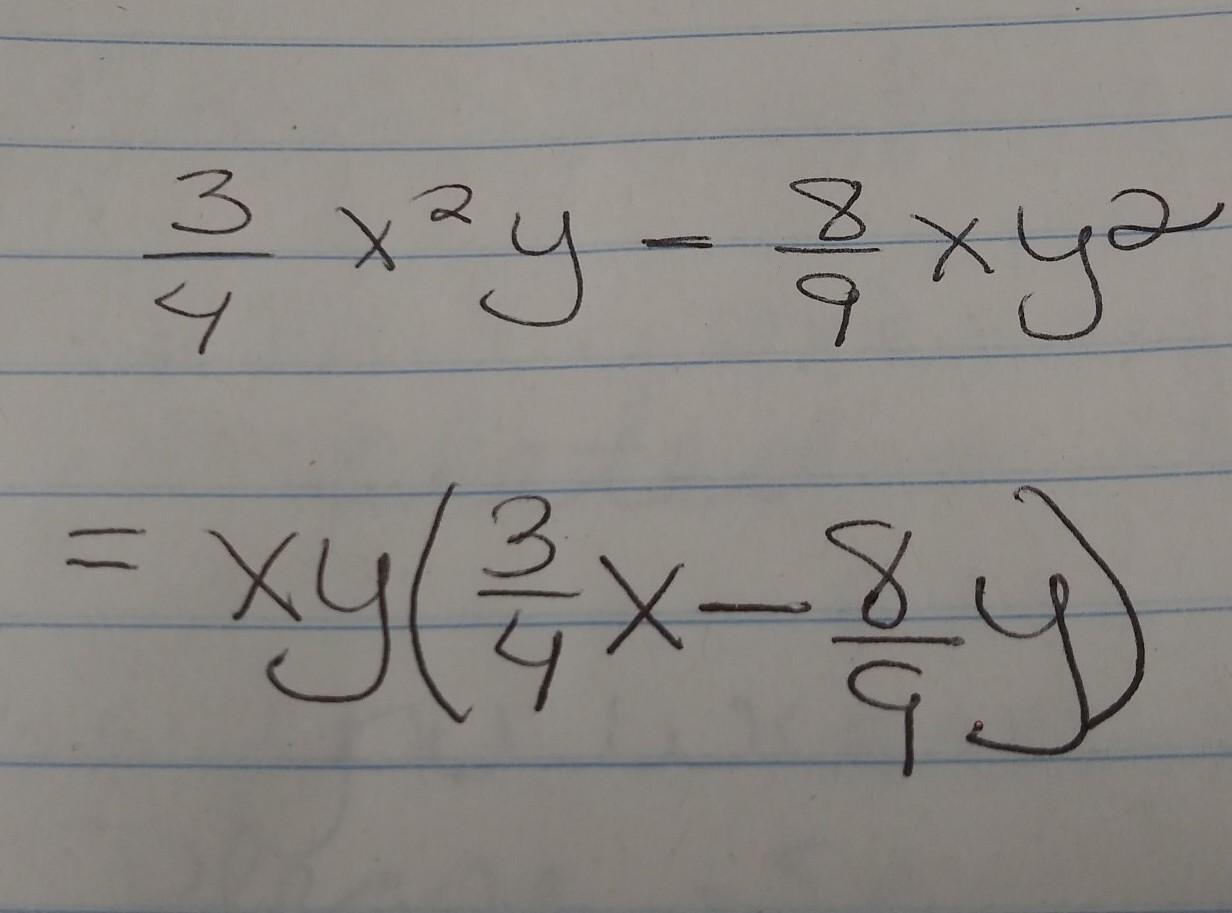 3/4 x²y - 8/9 xy²
= xy(3/4 x - 8/9 y)